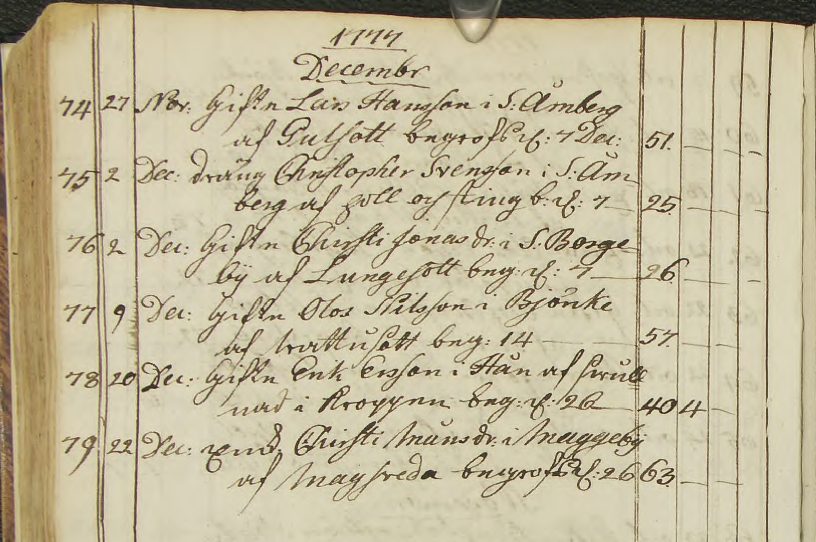 1777
Decembr
74 27 Nov: Giftn Lars Hansson i S: Åmberg
af Gulsott begrofs d: 7 Dec: 51.
75 2 Dec: dräng Christopher Svensson i S: Åm
berg af håll och sting b: d: 7 25
76 2 Dec: Giftn Chirsti Jonasdr: i S. Borge
bÿ af Lungesott beg: d: 7 26
77 9 Dec: Giftn Olof Nilsson i Björike
af trattusott beg: 14 57.
78 20 Dec: Giftn Erik Ersson i Hån af swull
nad i Kroppen beg: d: 26 40 4
79 22 Dec: Chirsti Månsdr: i Maggebÿ
af Magsveda begrofs d: 26 63